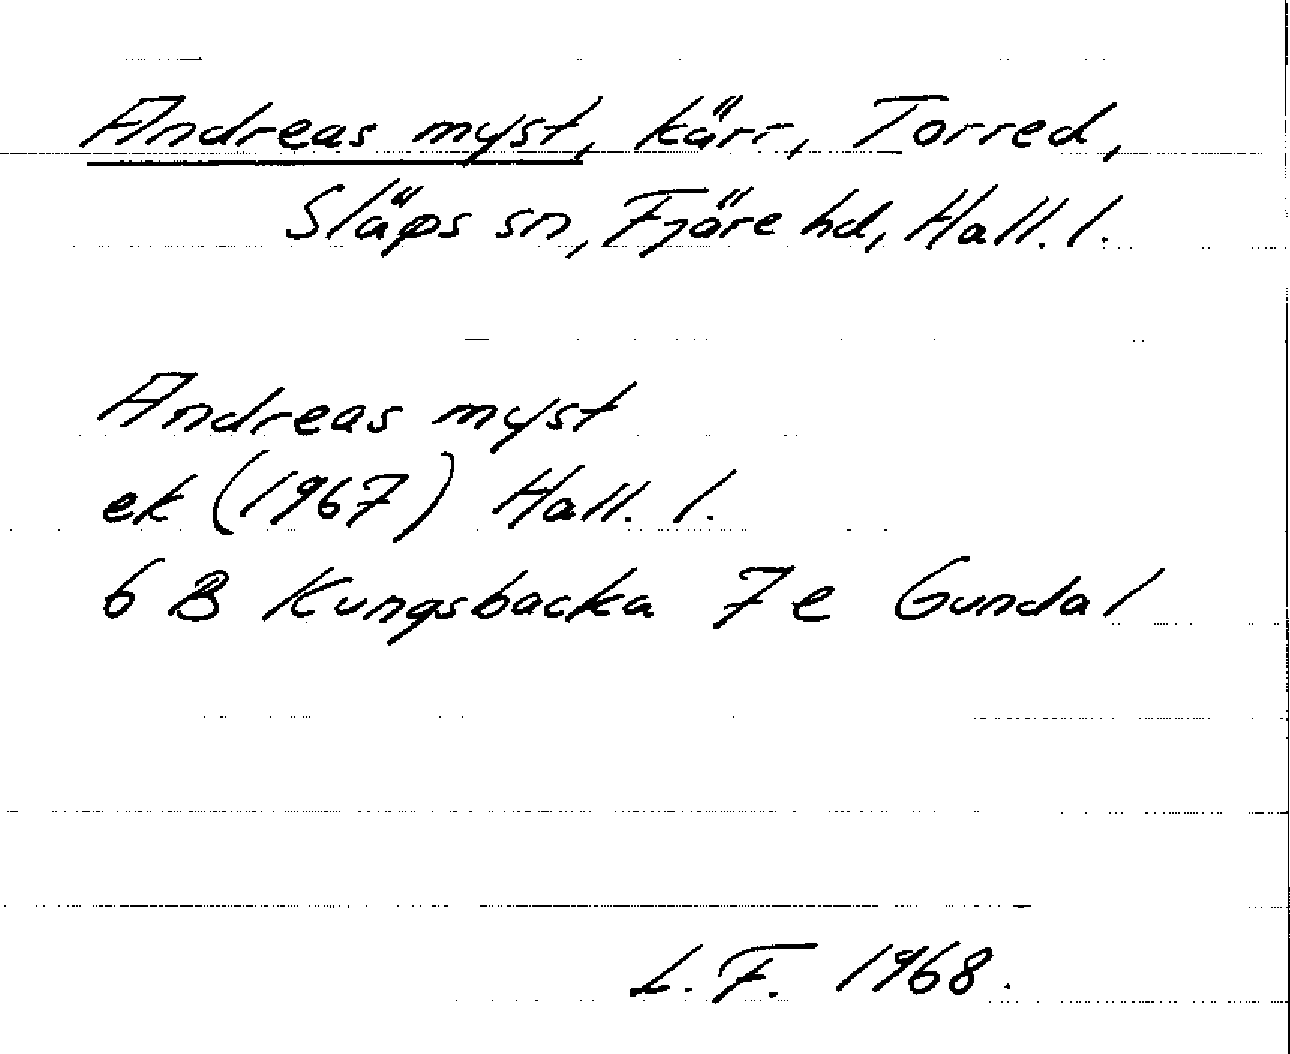 Andreas myst, kärr, Torred,
Släps sn, Fjäre hd, Hall. l.
Andreas myst
ek (1967) Hall. l.
6 B Kungsbacka 7 e Gundal
L. F. 1968.